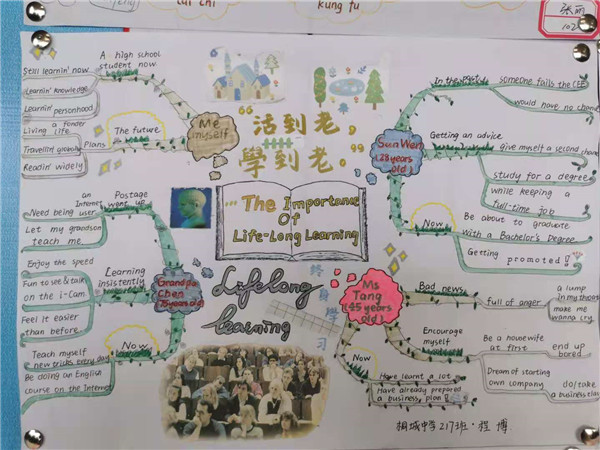 tai chi
kung fu
张丽
102
A high school
student now
Still learnin' now
Learnin' knowledge
Learnin' personhood
Me
myself
The future
Plans
Living a Fonder
life
Travellin' globally
Readin' widely
“活到老,
學到老.”
...The Importance
Of
Life-Long Learning
Lifelong
learning
终身學习
Grandpa
Chen
(75 years old)
Postage
went up
an
Internet
Need being user
Let my grandson
teach me
Learning
insistently
Enjoy the speed
Fun to see & talk
on the i-Cam
Feel it easier
than before
Now
Teach myself
new tricks every day
Be doing an English
course on the Internet
Sun Wen
(28 years
old)
In the past
someone fails the CEE
would have no chance
Getting an advice
give myself a second chance
study for a degree
while keeping a
full-time job
Now
Be about to graduate
with a Bachelor's Degree
Getting
promoted!!
Ms
Tang
(45 years
old)
Bad news
full of anger
a lump
in my throat
make me
wanna cry
Encourage
myself
Be a housewife
at first
end up
bored
Dream of starting
own company
do/take
a business class
Now
Have learnt a lot
Have already prepared
a business plan!!
相城中学217班·程博